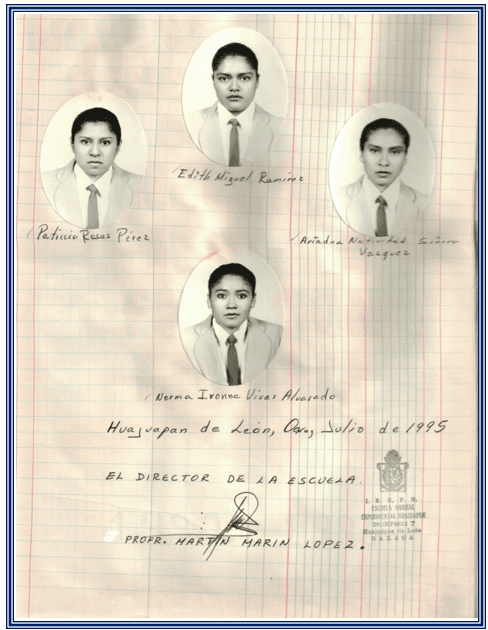 Edith Miguel Ramirez
Patricia Rosas Pérez
Ariadna Natividad
Vazquez
Norma Ivonne Vivar Alvarado
Huajuapan de León, Oax, Julio de 1995
EL DIRECTOR DE LA ESCUELA.
PROFR. MARTIN MARIN LOPEZ.
ESCUELA NORMAL
EXPERIMENTAL HUAJUAPAN
Huajuapan de León
OAXACA